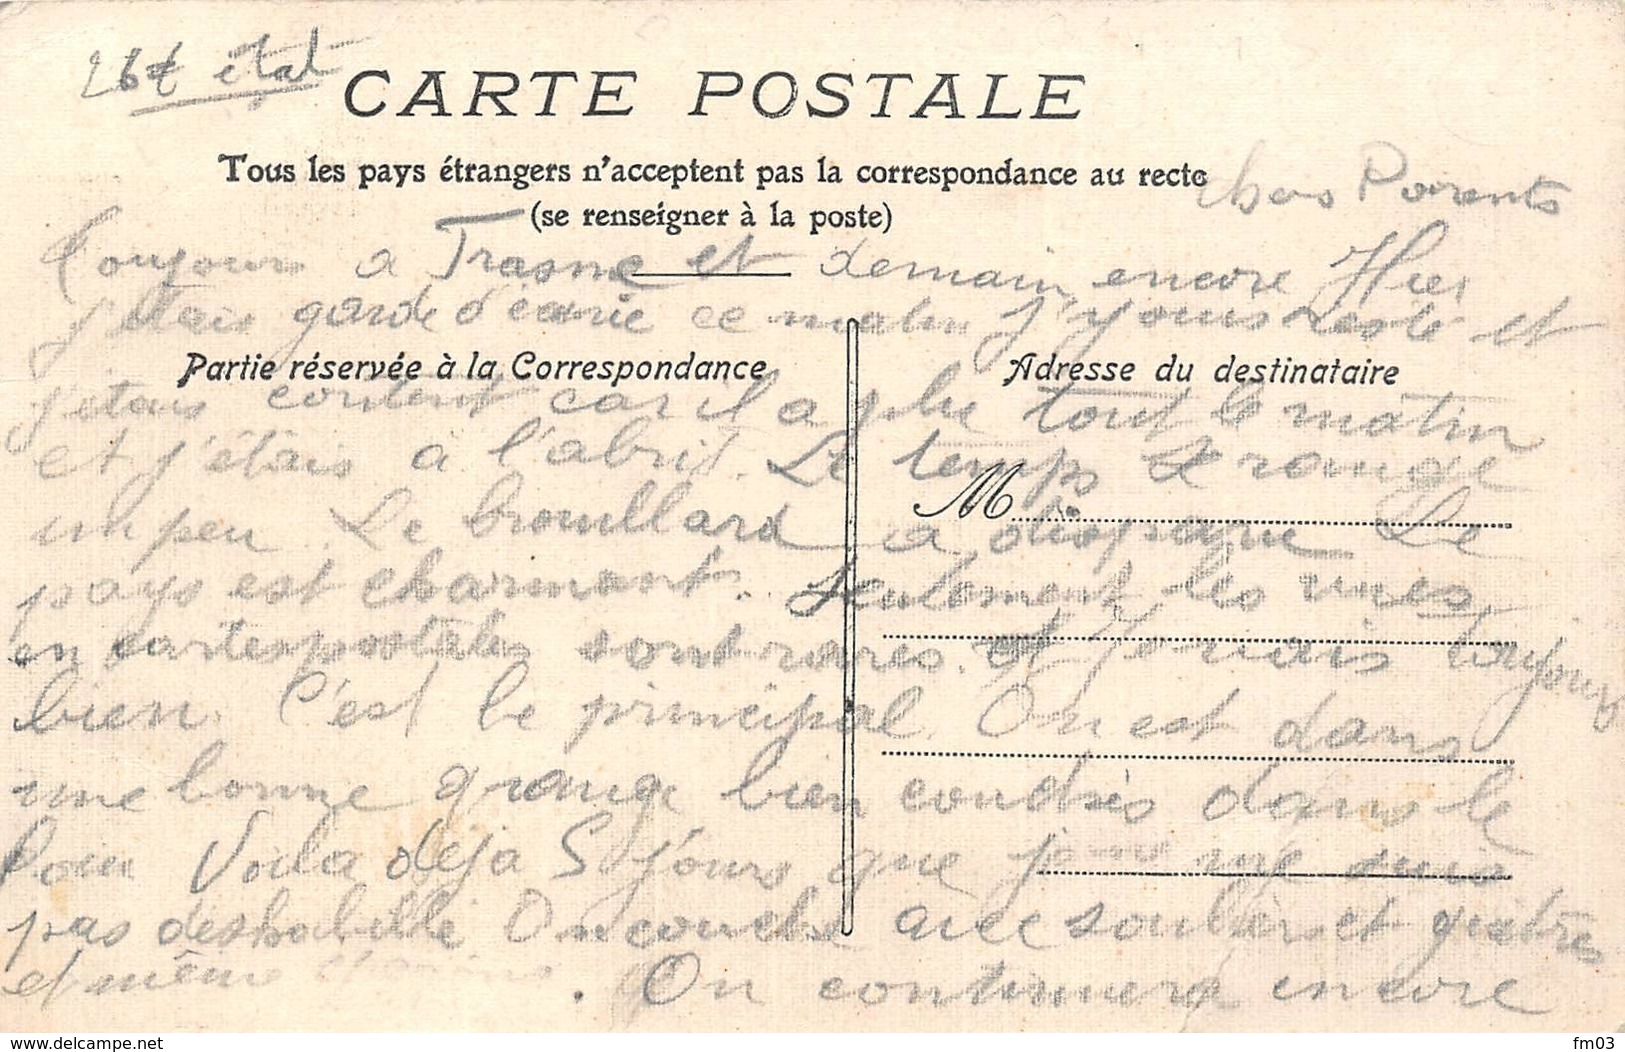 26€ état
CARTE POSTALE
Tous les pays étrangers n'acceptent pas la correspondance au recto
(se renseigner à la poste)
chers Parents
Toujours a Trasne et demain encore Hier
j'étais garde d'écurie ce matin j'y suis resté et
Partie réservée à la Correspondance
Adresse du destinataire
j'étais content car il a plu tout le matin
et j'étais à l'abri. Le temps se range
un peu. Le brouillard a disparu Le
M
pays est charmant. Seulement les vues
en cartes postales sont rares. et je vais toujours
bien. C'est le principal. On est dans
une bonne grange bien couchés dans le
foin Voila deja 5 jours que je ne me suis
pas deshabillé On couche avec souliers et guêtres
et même . On continuera encore
www.delcampe.net
fm03